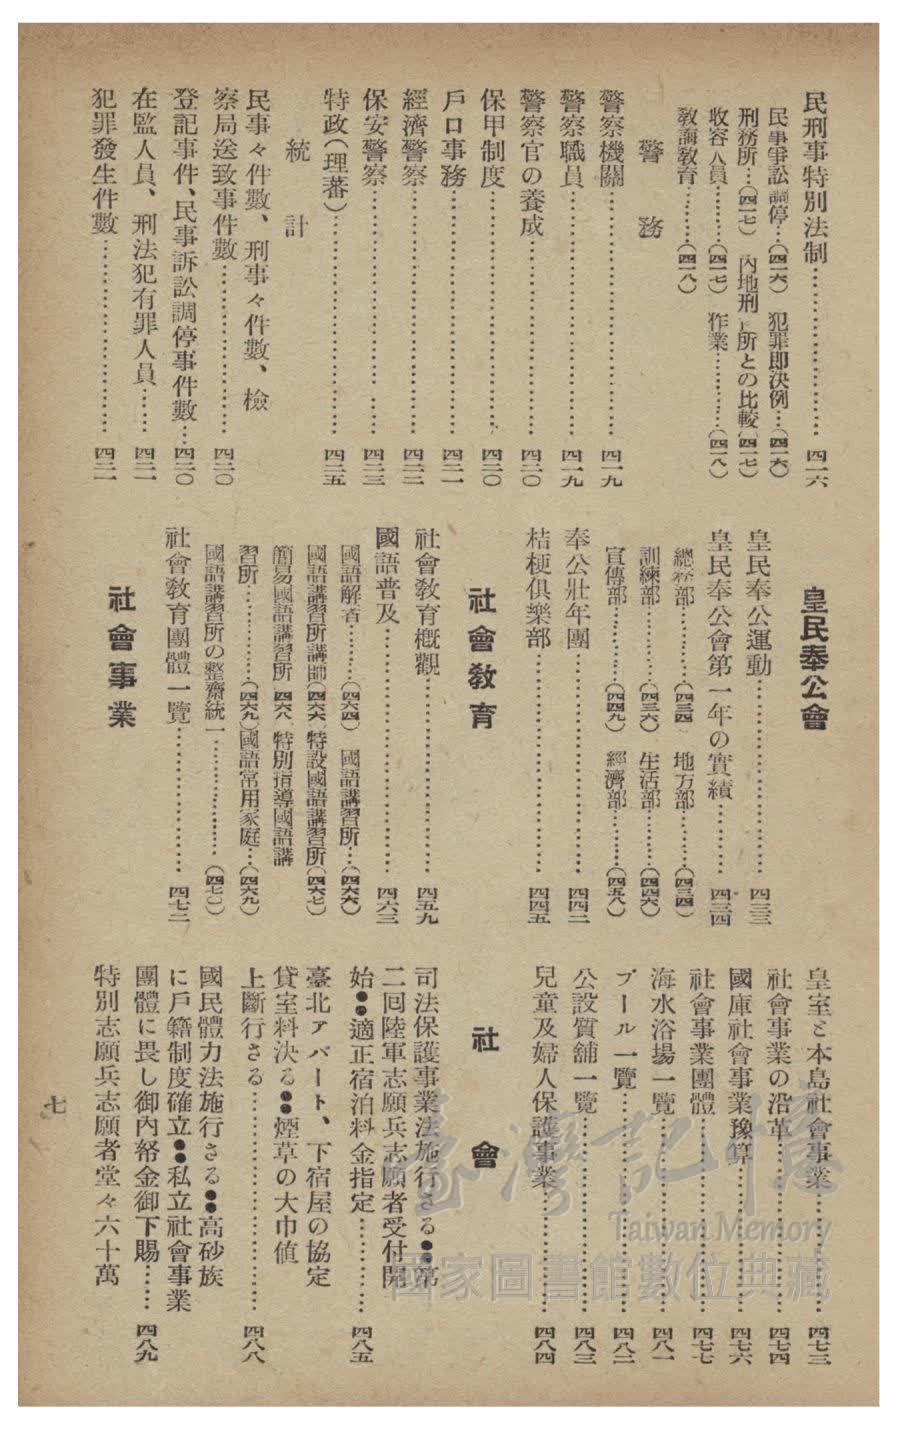 民刑事特別法制……………………四一六
民事爭訟調停…(四一六) 犯罪即決例…(四一六)
刑務所…(四一七) 內地刑 所との比較(四一七)
收容人員………(四一七) 作業…………(四一八)
敎誨敎育………(四一八)
警務
警察機關……………………四一九
警察職員……………………四一九
警察官の養成……………………四二〇
保甲制度……………………四二〇
戶口事務……………………四二一
經濟警察……………………四二二
保安警察……………………四二三
特政(理蕃)……………………四二五
統計
民事々件數、刑事々件數、檢
察局送致事件數……………………四二〇
登記事件、民事訴訟調停事件數…四二〇
在監人員、刑法犯有罪人員……四二一
犯罪發生件數……………………四二一
皇民奉公會
皇民奉公運動……………………四三三
皇民奉公會第一年の實績………四三四
總務部…………(四三四) 地方部…………(四三四)
訓練部…………(四三六) 生活部…………(四四六)
宣傳部…………(四四九) 經濟部…………(四五八)
奉公壯年團……………………四四二
桔梗俱樂部……………………四四五
社會敎育
社會敎育槪觀……………………四五九
國語普及……………………四六三
國語解者………(四六四) 國語講習所…(四六六)
國語講習所講師(四六六)特設國語講習所(四六七)
簡易國語講習所 四六八 特別指導國語講
習所……………(四六九)國語常用家庭…(四六九)
國語講習所の整齋統一……………(四七 )
社會敎育團體一覽……………………四七二
社會事業
皇室と本島社會事業……………四七三
社會事業の沿革……………………四七四
國庫社會事業豫算……………………四七六
社會事業團體……………………四七七
海水浴場一覽……………………四八一
プール一覽……………………四八二
公設質舖一覽……………………四八三
兒童及婦人保護事業……………四八四
社會
司法保護事業法施行さる●●第
二囘陸軍志願兵志願者受付開
始●●適正宿泊料金指定…………四八五
臺北アパート、下宿屋の協定
貸室料決る●●煙草の大巾値
上斷行さる……………………四八八
國民體力法施行さる●●高砂族
に戶籍制度確立●●私立社會事業
團體に畏し御內帑金御下賜……四八九
特別志願兵志願者堂々六十萬
七
臺灣記憶
Taiwan Memory
國家圖書館數位典藏